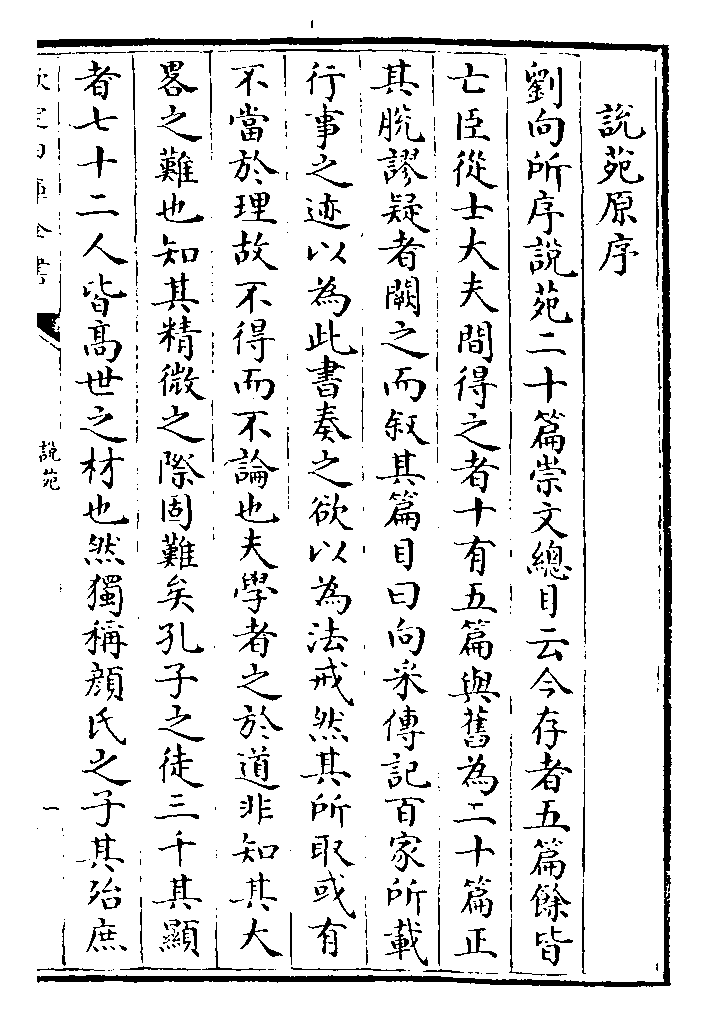 說苑原序
劉向所序說苑二十篇崇文總目云今存者五篇餘皆
亡臣從士大夫間得之者十有五篇與舊為二十篇正
其脫謬疑者闕之而叙其篇目曰向采傳記百家所載
行事之迹以為此書奏之欲以為法戒然其所取或有
不當於理故不得而不論也夫學者之於道非知其大
畧之難也知其精微之際固難矣孔子之徒三千其顯
者七十二人皆高世之材也然獨稱顔氏之子其殆庶
欽定四庫全書
說苑
一